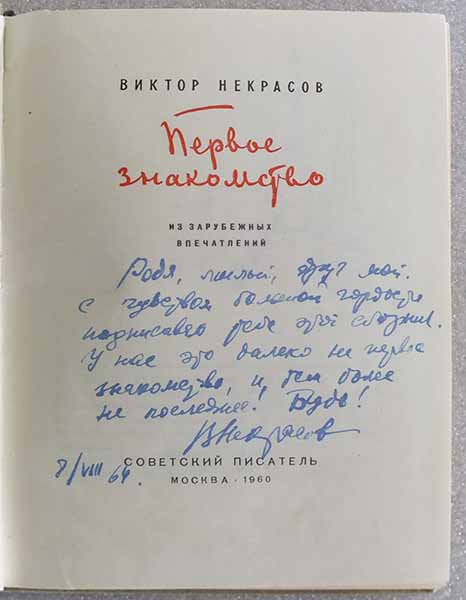 ВИКТОР НЕКРАСОВ
Первое
знакомство
ИЗ ЗАРУБЕЖНЫХ
ВПЕЧАТЛЕНИЙ
Родя, милый, друг мой.
С чувством большой гордости
подписываю тебе этот
У нас это далеко не первое
знакомство, и, тем более
не последнее! Будь!
ВНекрасов
8/VIII 64.
СОВЕТСКИЙ ПИСАТЕЛЬ
МОСКВА · 1960